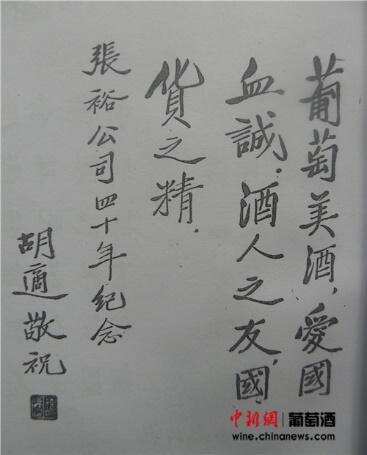 葡萄美酒,愛國
血誠.酒人之友,國
貨之精.
張裕公司四十年紀念
胡適敬祝
中新網 葡萄酒
wine.chinanews.com